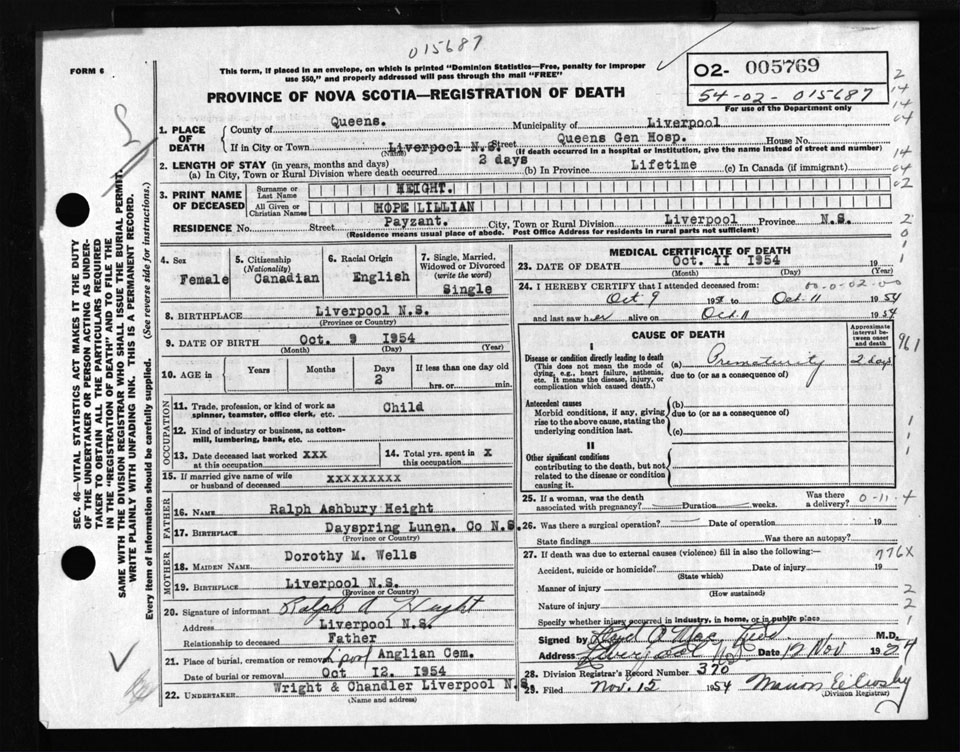 015687
FORM 6
This form, if placed in an envelope, on which is printed "Dominion Statistics—Free, penalty for improper
use $50," and properly addressed will pass through the mail "FREE"
02- 005769
54-02-015687
For use of the Department only
PROVINCE OF NOVA SCOTIA—REGISTRATION OF DEATH
1. PLACE OF DEATH
County of Queens. Municipality of Liverpool
If in City or Town Liverpool N.S. Street Queens Gen Hosp. House No.
(Name) (If death occurred in a hospital or institution, give the name instead of street and number)
2. LENGTH OF STAY (in years, months and days)
(a) In City, Town or Rural Division where death occurred 2 days (b) In Province Lifetime (c) In Canada (if immigrant)
3. PRINT NAME OF DECEASED
Surname or Last Name HEIGHT.
All Given or Christian Names HOPE LILLIAN
RESIDENCE No. Street Payzant. City, Town or Rural Division Liverpool Province N.S.
(Residence means usual place of abode. Post Office Address for residents in rural parts not sufficient)
4. Sex Female
5. Citizenship (Nationality) Canadian
6. Racial Origin English
7. Single, Married, Widowed or Divorced (write the word) Single
8. BIRTHPLACE Liverpool N.S.
(Province or Country)
9. DATE OF BIRTH Oct. 9 1954
(Month) (Day) (Year)
10. AGE in Years Months Days 2 If less than one day old hrs. or min.
OCCUPATION
11. Trade, profession, or kind of work as spinner, teamster, office clerk, etc. Child
12. Kind of industry or business, as cotton-mill, lumbering, bank, etc.
13. Date deceased last worked at this occupation XXX
14. Total yrs. spent in this occupation X
15. If married give name of wife or husband of deceased XXXXXXXXX
FATHER
16. NAME Ralph Ashbury Height
17. BIRTHPLACE Dayspring Lunen. Co N.S.
(Province or Country)
MOTHER
18. MAIDEN NAME Dorothy M. Wells
19. BIRTHPLACE Liverpool N.S.
(Province or Country)
20. Signature of informant Ralph A Height
Address Liverpool N.S.
Relationship to deceased Father
21. Place of burial, cremation or removal L'pool Anglian Cem.
Date of burial or removal Oct 12. 1954
22. UNDERTAKER Wright & Chandler Liverpool N.S
(Name and address)
MEDICAL CERTIFICATE OF DEATH
23. DATE OF DEATH Oct. II 1954 19
(Month) (Day) (Year)
24. I HEREBY CERTIFY that I attended deceased from:
Oct 9 1954 to Oct. 11 1954
and last saw her alive on Oct. 11 1954
CAUSE OF DEATH
Approximate interval between onset and death
I
Disease or condition directly leading to death
(This does not mean the mode of dying, e.g., heart failure, asthenia, etc. It means the disease, injury, or complication which caused death.)
(a) Prematurity 2 days
due to (or as a consequence of)
Antecedent causes
Morbid conditions, if any, giving rise to the above cause, stating the underlying condition last.
(b)
due to (or as a consequence of)
(c)
II
Other significant conditions
contributing to the death, but not related to the disease or condition causing it.
25. If a woman, was the death associated with pregnancy? Duration weeks. Was there a delivery? 0-11-4
26. Was there a surgical operation? Date of operation 19
State findings Was there an autopsy?
27. If death was due to external causes (violence) fill in also the following:—
776X
Accident, suicide or homicide? Date of injury 19
(State which)
Manner of injury
(How sustained)
Nature of injury
Specify whether injury occurred in industry, in home, or in public place
Signed by M.D.
Address Liverpool NS Date 12 Nov 19
28. Division Registrar's Record Number 370
29. Filed Nov. 15 1954 Marion E. Crosby
(Division Registrar)
961
SEC. 46—VITAL STATISTICS ACT MAKES IT THE DUTY
OF THE UNDERTAKER OR PERSON ACTING AS UNDER-
TAKER TO OBTAIN ALL THE PARTICULARS REQUIRED
IN THE "REGISTRATION OF DEATH" AND TO FILE THE
SAME WITH THE DIVISION REGISTRAR WHO SHALL ISSUE THE BURIAL PERMIT.
WRITE PLAINLY WITH UNFADING INK. THIS IS A PERMANENT RECORD.
Every item of information should be carefully supplied. (See reverse side for instructions.)